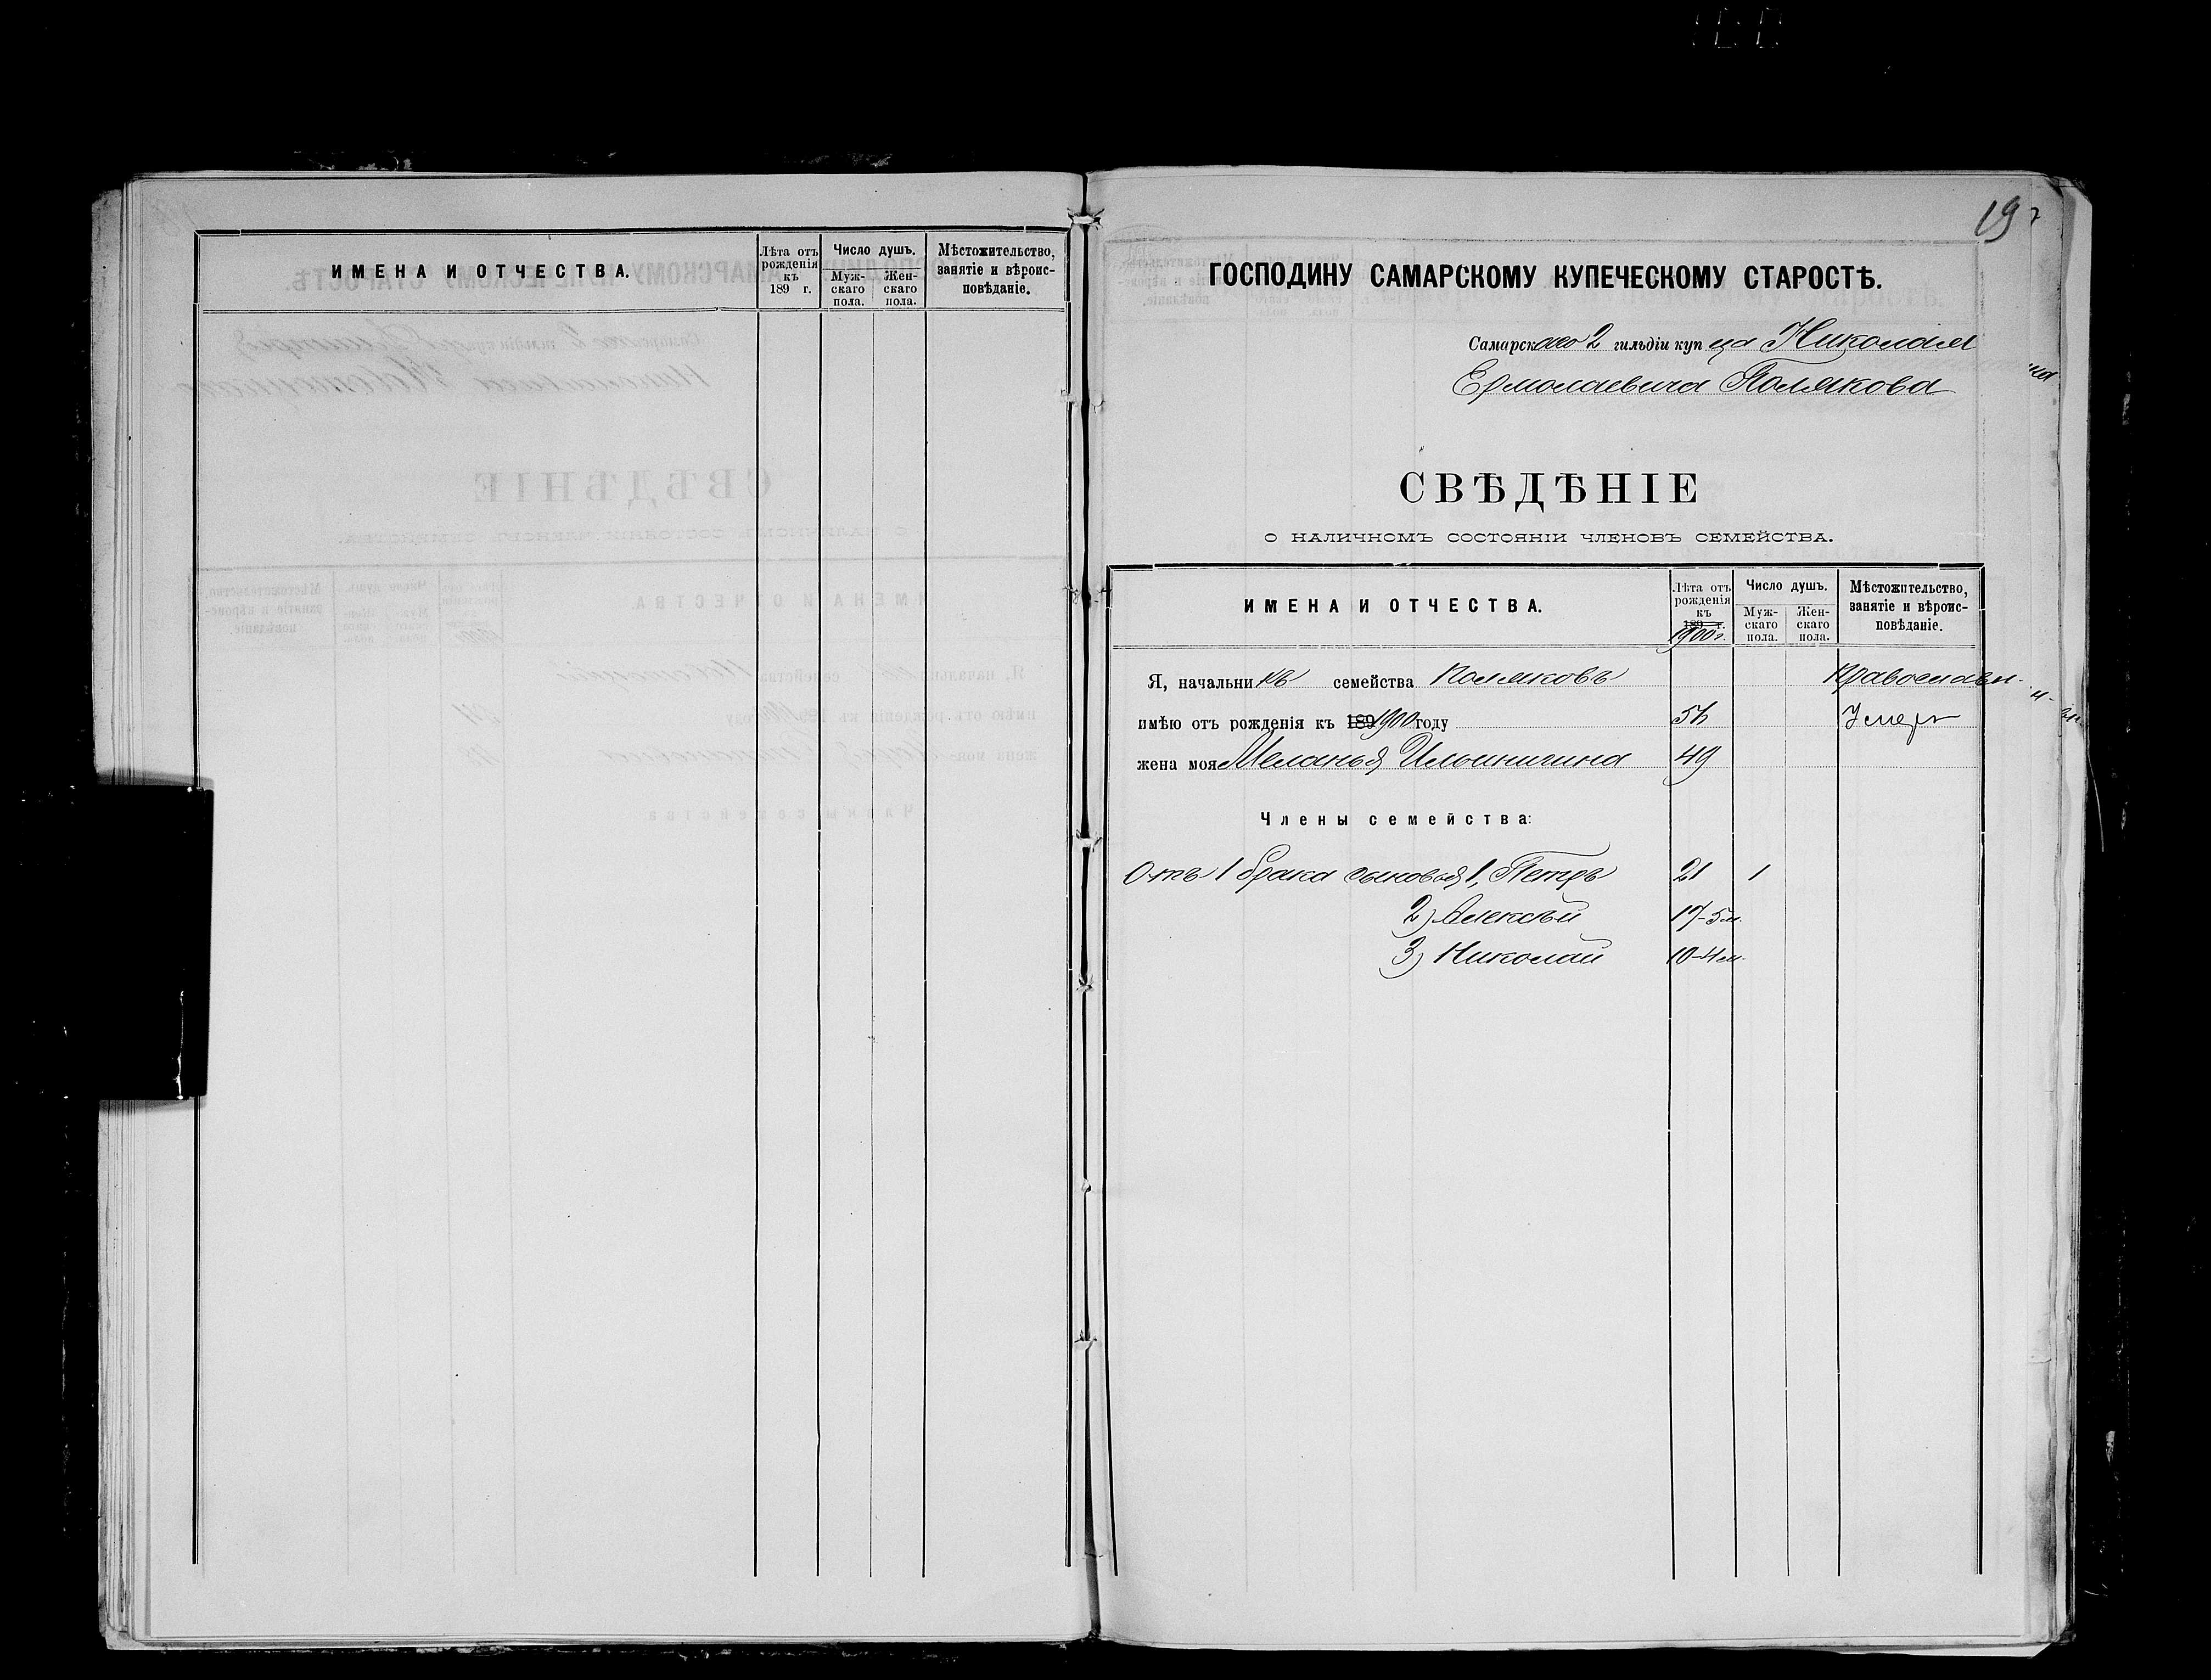 ИМЕНА И ОТЧЕСТВА.
Лѣта отъ рожденія къ 189 г.
Число душъ.
Муж-скаго пола.
Жен-скаго пола.
Мѣстожительство, занятіе и вѣроис-повѣданіе.
19
ГОСПОДИНУ САМАРСКОМУ КУПЕЧЕСКОМУ СТАРОСТѢ.
Самарскаго 2 гильдіи купца Николая
Ермолаевича Полякова
СВѢДѢНІЕ
О НАЛИЧНОМЪ СОСТОЯНІИ ЧЛЕНОВЪ СЕМЕЙСТВА.
ИМЕНА И ОТЧЕСТВА.
Лѣта отъ рожденія къ 189 г. 1900 г.
Число душъ.
Муж-скаго пола.
Жен-скаго пола.
Мѣстожительство, занятіе и вѣроис-повѣданіе.
Я, начальникъ семейства Поляковъ Православн.
имѣю отъ рожденія къ 189 1900 году
жена моя Меланья 49
Члены семейства:
Отъ 1 брака сыновья 1, Петръ 21 1
2) Алексѣй
3) Николай 10-4 м.